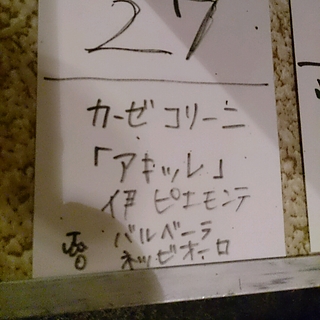 27
カーゼ コリーニ
「アキッレ」
伊 ピエモンテ
バルベーラ
ネッビオーロ